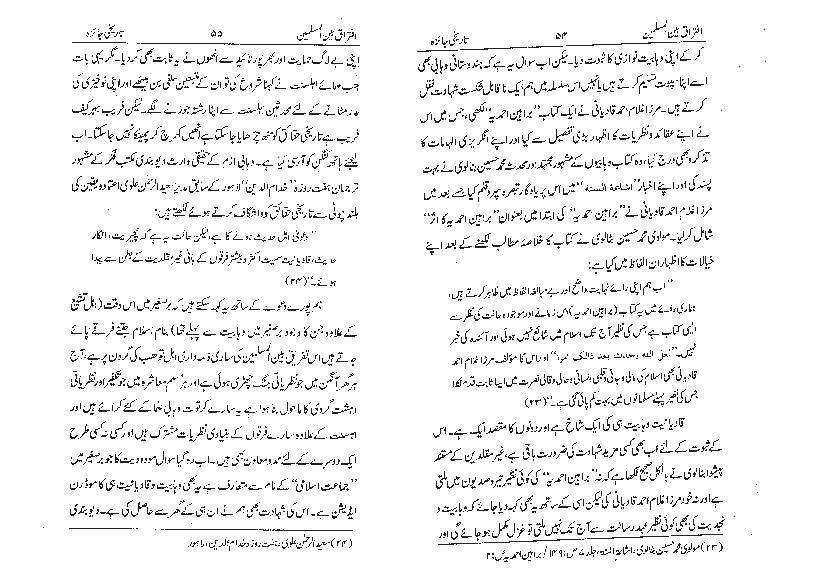 افتراق بین المسلمین ۵۴ تاریخی جائزہ
کر کے اپنی وہابیت نوازی کا ثبوت دیا۔ لیکن اب سوال یہ ہے کہ ہندوستانی وہابی بھی
اسے اپنا تسلیم کرتے ہیں یا نہیں اس سلسلہ میں ہم ایک نا قابل شکست شہادت نقل
کرتے ہیں۔ مرزا غلام احمد قادیانی نے ایک کتاب "براہین احمدیہ" لکھی، جس میں اس
نے اپنے عقائد و نظریات کا اظہار بڑی تفصیل سے کیا اور اپنے انگریزی الہامات کا
تذکرہ بھی درج کیا، وہ کتاب وہابیوں کے مشہور مجتہد اور محدث محمد حسین بٹالوی نے بہت
پسند کی اور اپنے اخبار "اشاعۃ السنہ" میں اس پر یادگار تبصرہ سپرد قلم کیا جسے بعد میں
مرزا غلام احمد قادیانی نے "براہین احمدیہ" کی ابتدا میں بعنوان "براہین احمدیہ کا اثر"
شامل کر لیا۔ مولوی محمد حسین بٹالوی نے کتاب کا خلاصۂ مطالب لکھنے کے بعد اپنے
خیالات کا اظہار ان الفاظ میں کیا ہے:
"اب ہم اپنی رائے نہایت واضح اور بے مبالغہ الفاظ میں ظاہر کرتے ہیں،
ہماری رائے میں یہ کتاب (براہین احمدیہ) اس زمانے اور موجودہ حالت کی نظر سے
ایسی کتاب ہے جس کی نظیر آج تک اسلام میں شائع نہیں ہوئی اور آئندہ کی خبر
نہیں۔ "لعل اللہ یحدث بعد ذالک امرا" اور اس کا مؤلف مرزا غلام احمد
قادیانی بھی اسلام کی مالی و جانی و قلمی و لسانی و حالی و قالی نصرت میں ایسا ثابت قدم نکلا
جس کی نظیر پہلے مسلمانوں میں بہت کم پائی گئی ہے۔" (۲۳)
قادیانیت وہابیت ہی کی ایک شاخ ہے اور دونوں کا مقصد ایک ہے۔ اس
کے ثبوت کے لئے اب بھی کسی مزید شہادت کی ضرورت باقی ہے، غیر مقلدین کے معتقد
پیشوا بٹالوی نے بالکل صحیح لکھا ہے کہ نہ "براہین احمدیہ" کی کوئی نظیر تیرہ صدیوں میں ملتی
ہے اور نہ خود مرزا غلام احمد قادیانی کی لیکن اسی کے ساتھ یہ بھی کہہ دیا جائے کہ وہابیت و
نجدیت کی بھی کوئی نظیر عہد رسالت سے آج تک نہیں ملتی تو غزل مکمل ہو جائے گی اور
(۲۳) مولوی محمد حسین بٹالوی، اشاعۃ السنہ، جلد ۷ ص: ۱۴۹/ براہین احمدیہ ص: ۲
افتراق بین المسلمین ۵۵ تاریخی جائزہ
اپنی بے لاگ حمایت اور بھرپور تائید سے انھوں نے یہ ثابت بھی کر دیا۔ مگر یہی بات
جب علمائے اہلسنت نے کہنا شروع کی تو ان کے متبعین سلفی بن بیٹھے اور اپنی نوخیزی کی
عار مٹانے کے لئے محدثین اہلسنت سے اپنا رشتہ جوڑنے لگے۔ لیکن فریب بہر کیف
فریب ہے تاریخی حقائق کو منھ چڑھایا جا سکتا ہے انھیں کھرچ کر پھینکا نہیں جا سکتا۔ اب
لیجئے ہاتھ کنگن کو آرسی کیا ہے۔ وہابی ازم کے حقیقی وارث دیوبندی مکتب فکر کے مشہور
ترجمان ہفت روزہ "خدام الدین" لاہور کے سابق مدیر سعید الرحمٰن علوی اعتماد و یقین کی
بلند چوٹی سے تاریخی حقائق کو واشگاف کرتے ہوئے لکھتے ہیں:
"دعویٰ اہل حدیث ہونے کا ہے، لیکن حالت یہ ہے کہ نیچریت، انکار
حدیث، قادیانیت سمیت اکثر و بیشتر فرقوں کے بانی غیر مقلدیت کے بطن سے پیدا
ہوئے۔" (۲۴)
ہم پورے دعوے کے ساتھ یہ کہہ سکتے ہیں کہ برصغیر میں اس وقت (اہل تشیع
کے علاوہ جن کا وجود برصغیر میں وہابیت سے پہلے تھا) بنام اسلام جتنے فرقے پائے
جاتے ہیں اس تفریق بین المسلمین کی ساری ذمہ داری اہل تو ہب کی گردن پر ہے، آج
ہر گھر آنگن میں جو نظریاتی جنگ چھڑی ہوئی ہے اور ہر مسلم معاشرہ میں جو تکفیر اور نظریاتی
دہشت گردی کا ماحول بنا ہوا ہے یہ سارے کرتوت وہابی علما کے کئے کرائے ہیں اور
اہلسنت کے علاوہ سارے فرقوں کے بنیادی نظریات مشترک ہیں اور کسی نہ کسی طرح
ایک دوسرے کے لئے ممد و معاون بھی ہیں۔ اب رہ گیا سوال مودودیت کا جو برصغیر میں
"جماعت اسلامی" کے نام سے متعارف ہے یہ بھی وہابیت و قادیانیت ہی کا موڈرن
ایڈیشن ہے۔ اس کی شہادت بھی ہم نے ان ہی کے گھر سے حاصل کی ہے۔ دیوبندی
(۲۴) سعید الرحمٰن علوی، ہفت روزہ خدام الدین، لاہور